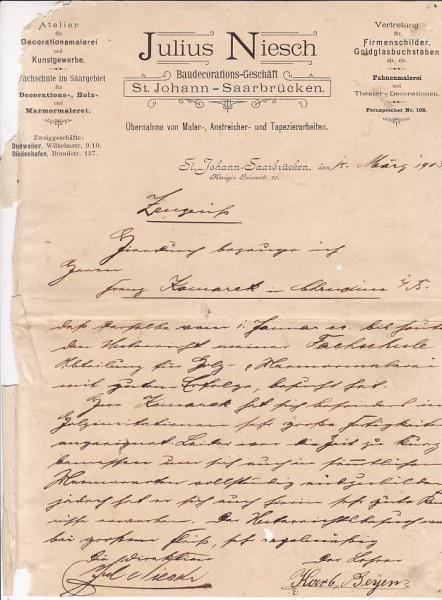 Atelier
für
Decorationsmalerei
und
Kunstgewerbe.
Fachschule im Saargebiet
für
Decorations-, Holz-
und
Marmormalerei.
Zweiggeschäfte:
Dudweiler, Wilhelmstr. 9/10.
Diedenhofen, Brandstr. 137.
Julius Niesch
Baudecorations-Geschäft
St. Johann-Saarbrücken.
Übernahme von Maler-, Anstreicher- und Tapezierarbeiten.
Vertretung
für
Firmenschilder,
Goldglasbuchstaben
etc. etc.
Fahnenmalerei
und
Theater-Decorationen.
Fernsprecher Nr. 198.
St. Johann-Saarbrücken, den 15. März 1903
Königin Luisenstr. 10.
Zeugniss
Hierdurch bezeuge ich
Herrn
Franz Komarek in Chrudim i/B.
daß derselbe vom 1. Januar cr. bis heute
den Unterricht meiner Fachschule
Abteilung für Holz- & Marmormalerei
mit gutem Erfolge, besucht hat.
Herr Komarek hat sich besonders in
Holzimitationen sehr große Fertigkeiten
angeeignet. Leider war die Zeit zu kurz
bemessen um sich auch in sämtlichen
Marmorarten vollständig auszubilden
jedoch hat er sich auch hierin sehr gute
erworben. Der Unterrichtsbesuch war
bei großem Fleiß, sehr regelmäßig
Die Direktion
Der Lehrer
Jul. Niesch
Beyen